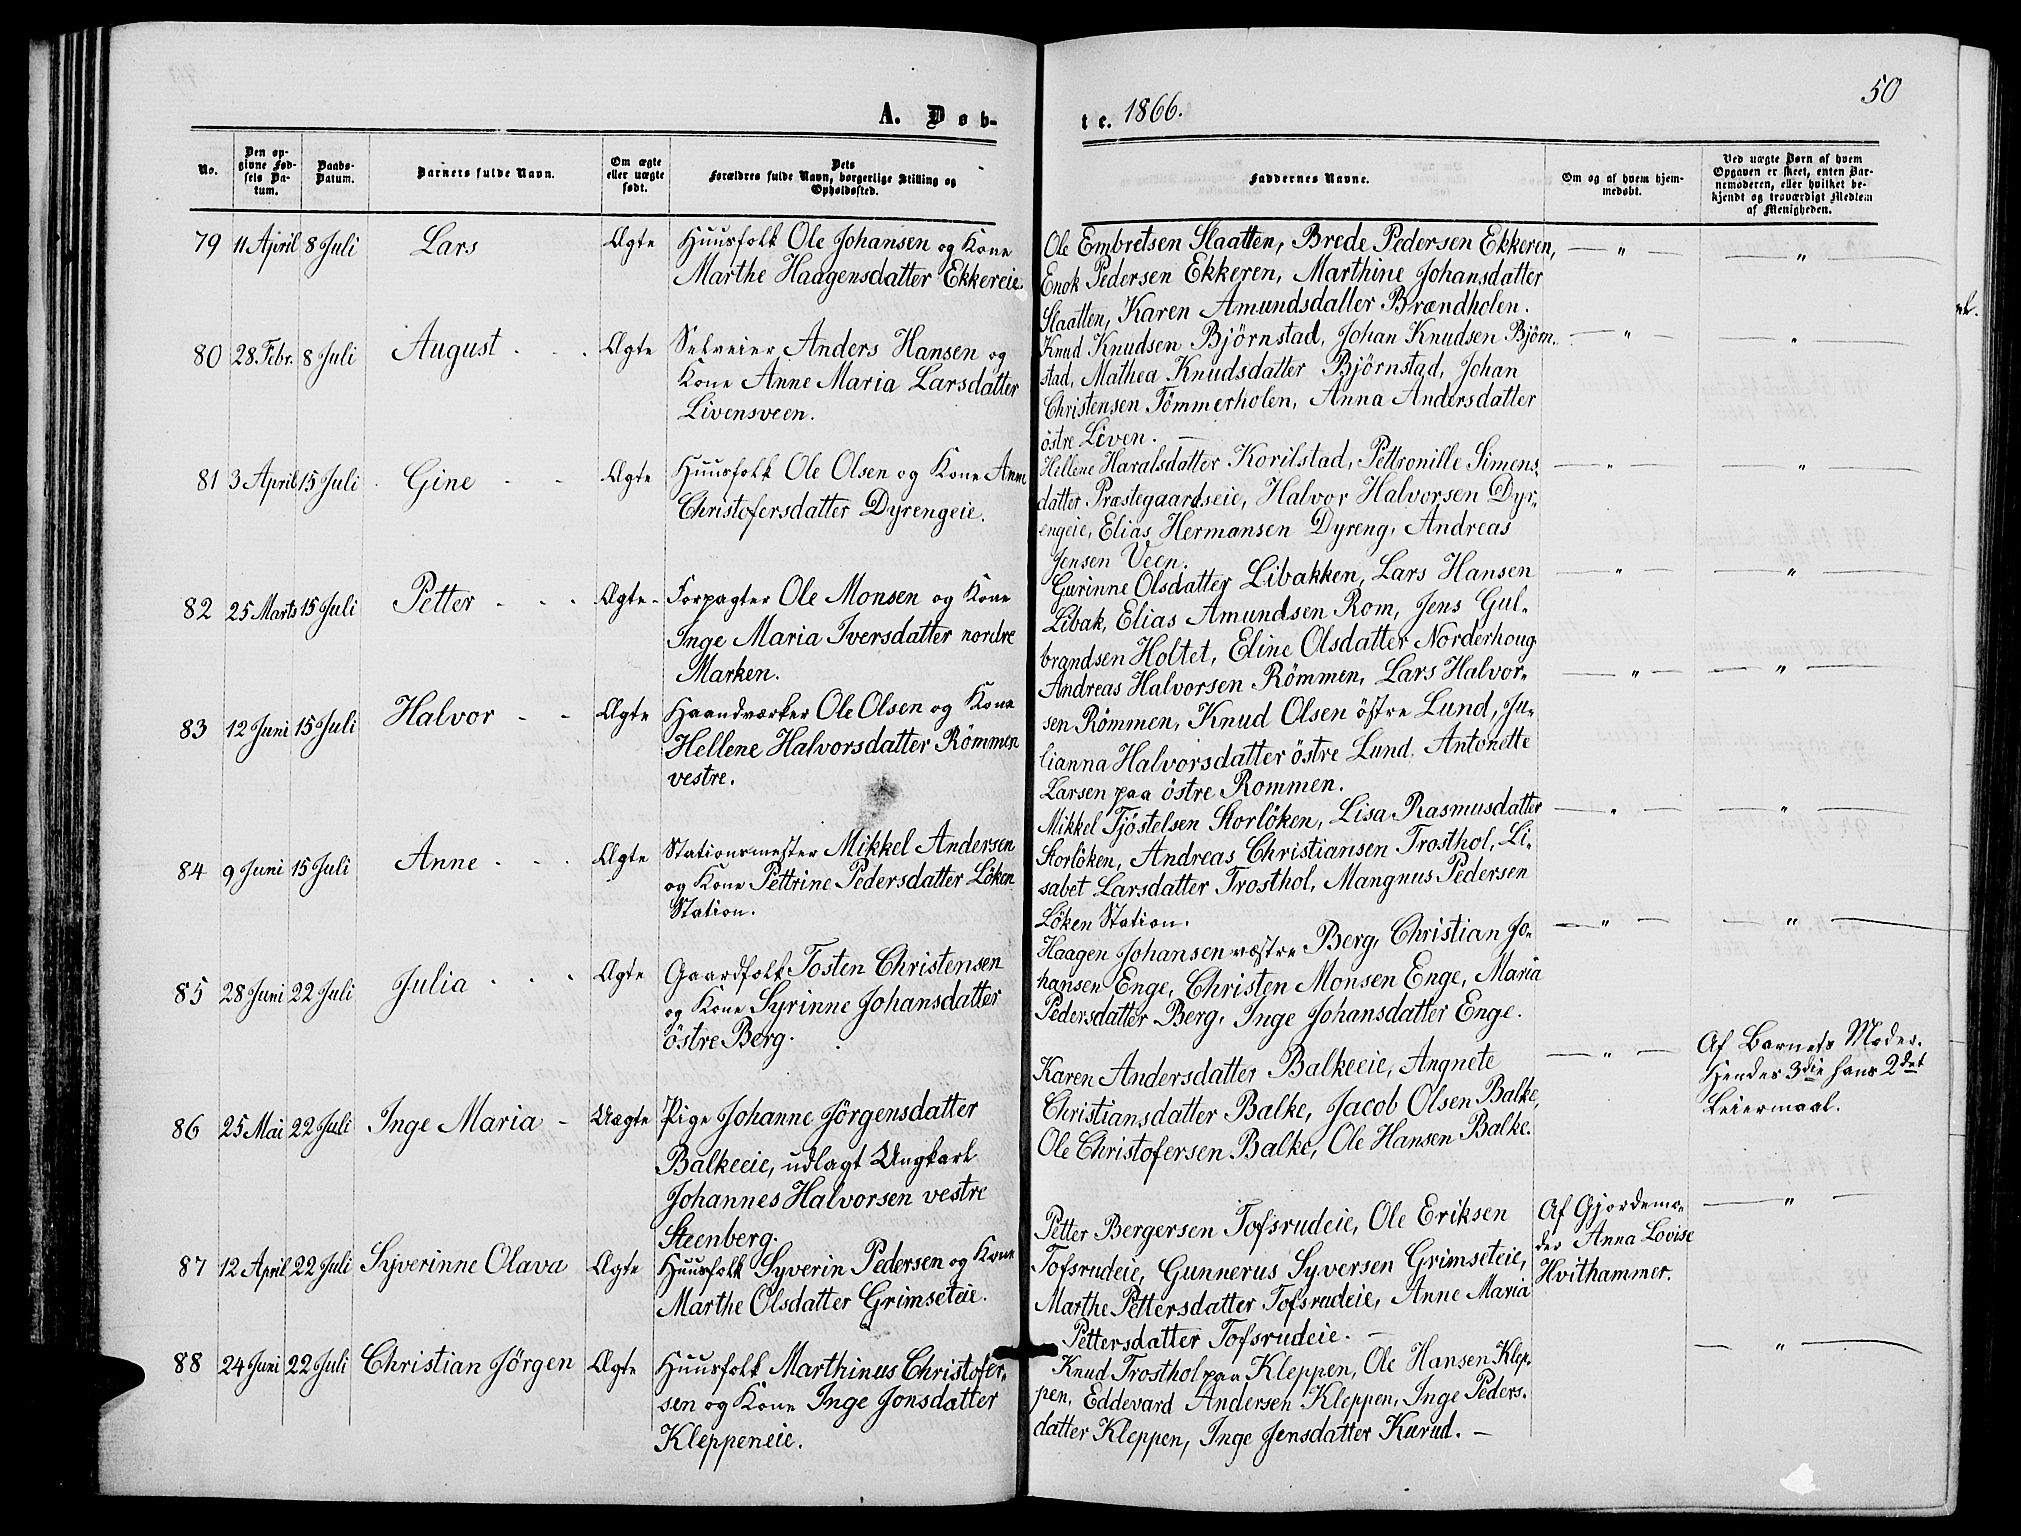 50
A. Døb-
te. 1866.
No.
Den op-
givne Fød-
sels Da-
tum.
Daabs-
Datum.
Barnets fulde Navn.
Om ægte
eller uægte
født.
Dets
Forældres fulde Navn, borgerlige Stilling og
Opholdssted.
Faddernes Navne.
Om og af hvem hjem-
medøbt.
Ved uægte Børn af hvem
Opgaven er skeet, enten Bar-
nemoderen, eller hvilket be-
kjendt og troværdigt Medlem
af Menigheden.
79 11 April 8 Juli Lars Ægte Huusfolk Ole Johansen og Kone
Marthe Haagensdatter Ekkereie.
Ole Embretsen Slaatten, Brede Pedersen Ekkeren, — " — — " —
Enok Pedersen Ekkeren, Marthine Johansdatter
Slaatten, Karen Amundsdatter Brændholen.
80 28. Febr. 8 Juli August Ægte Selveier Anders Hansen og
Kone Anne Maria Larsdatter
Livensveen.
Knud Knudsen Bjørnstad, Johan Knudsen Bjørn- — " — — " —
stad, Mathea Knudsdatter Bjørnstad, Johan
Christensen Tömmerholen, Anna Andersdatter
östre Liven. —
81 3 April 15 Juli Gine Ægte Huusfolk Ole Olsen og Kone Anne
Christofersdatter Dyrengeie.
Hellene Haralsdatter Korilstad, Pettronille Simens- — " — — " —
datter Præstegaardseie, Halvor Halvorsen Dyr-
engeie, Elias Hermansen Dyreng, Andreas
Jensen Veen.
82 25 Marts 15 Juli Petter Ægte Forpagter Ole Monsen og Kone
Inge Maria Iversdatter nordre
Marken.
Gurinne Olsdatter Libakken, Lars Hansen — " — — " —
Libak, Elias Amundsen Rom, Jens Gul-
brandsen Holtet, Eline Olsdatter Norderhoug
83 12 Juni 15 Juli Halvor Ægte Haandværker Ole Olsen og Kone
Hellene Halvorsdatter Römmen
vestre.
Andreas Halvorsen Römmen, Lars Halvor- — " — — " —
sen Römmen, Knud Olsen östre Lund, Ju-
lianna Halvorsdatter östre Lund, Antonette
Larsen paa östre Rommen.
84 9 Juni 15 Juli Anne Ægte Stationsmester Mikkel Andersen
og Kone Pettrine Pedersdatter Löken
Station.
Mikkel Tjöstelsen Storlöken, Lisa Rasmusdatter — " — — " —
Storlöken, Andreas Christiansen Trosthol, Li-
sabet Larsdatter Trosthol, Mangnus Pedersen
Löken Station.
85 28 Juni 22 Juli Julia Ægte Gaardfolk Tosten Christensen
og Kone Syrinne Johansdatter
östre Berg.
Haagen Johansen vestre Berg, Christian Jo- — " — — " —
hansen Enge, Christen Monsen Enge, Maria
Pedersdatter Berg, Inge Johansdatter Enge.
86 25 Mai 22 Juli Inge Maria Uægte Pige Johanne Jörgensdatter
Balkeeie, udlagt Ungkarl
Johannes Halvorsen vestre
Steenberg.
Karen Andersdatter Balkeeie, Angnete — " —
Christiansdatter Balke, Jacob Olsen Balke,
Ole Christofersen Balke, Ole Hansen Balke.
Af Barnets Moder.
Hendes 3die hans 2det
Leiermaal.
87 12 April 22 Juli Syverinne Olava Ægte Huusfolk Syverin Pedersen og Kone
Marthe Olsdatter Grimseteie.
Petter Bergersen Tofsrudeie, Ole Eriksen
Tofsrudeie, Gunnerus Syversen Grimseteie,
Marthe Pettersdatter Tofsrudeie, Anne Maria
Pettersdatter Tofsrudeie. —
Af Gjordemo-
der Anna Lovise
Hvithammer.
— " —
88 24 Juni 22 Juli Christian Jörgen Ægte Huusfolk Marthinus Christofer-
sen og Kone Inge Jonsdatter
Kleppeneie.
Knud Trosthol paa Kleppen, Ole Hansen Klep- — " —
pen, Eddevard Andersen Kleppen, Inge Peders-
datter Kleppen, Inge Jensdatter Kurud. —